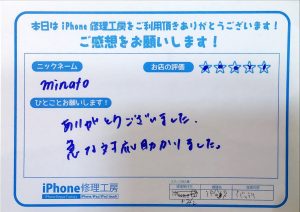 本日は iPhone 修理工房をご利用頂きありがとうございます!
ご感想をお願いします!
ニックネーム
お店の評価
minato
ひとことお願いします!
ありがとうございました。
急な対応助かりました。
iPhone修理工房